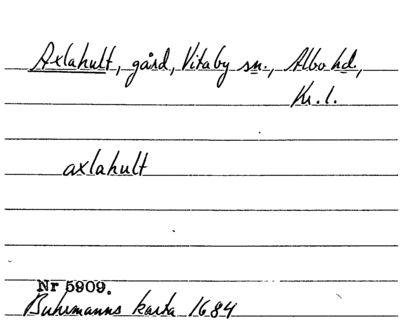 Axlahult, gård, Vitaby sn., Albo hd.,
Kr. l.
axlahult
Nr 5909.
Buhrmanns karta 1684